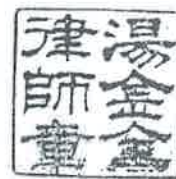 湯金全
律師章